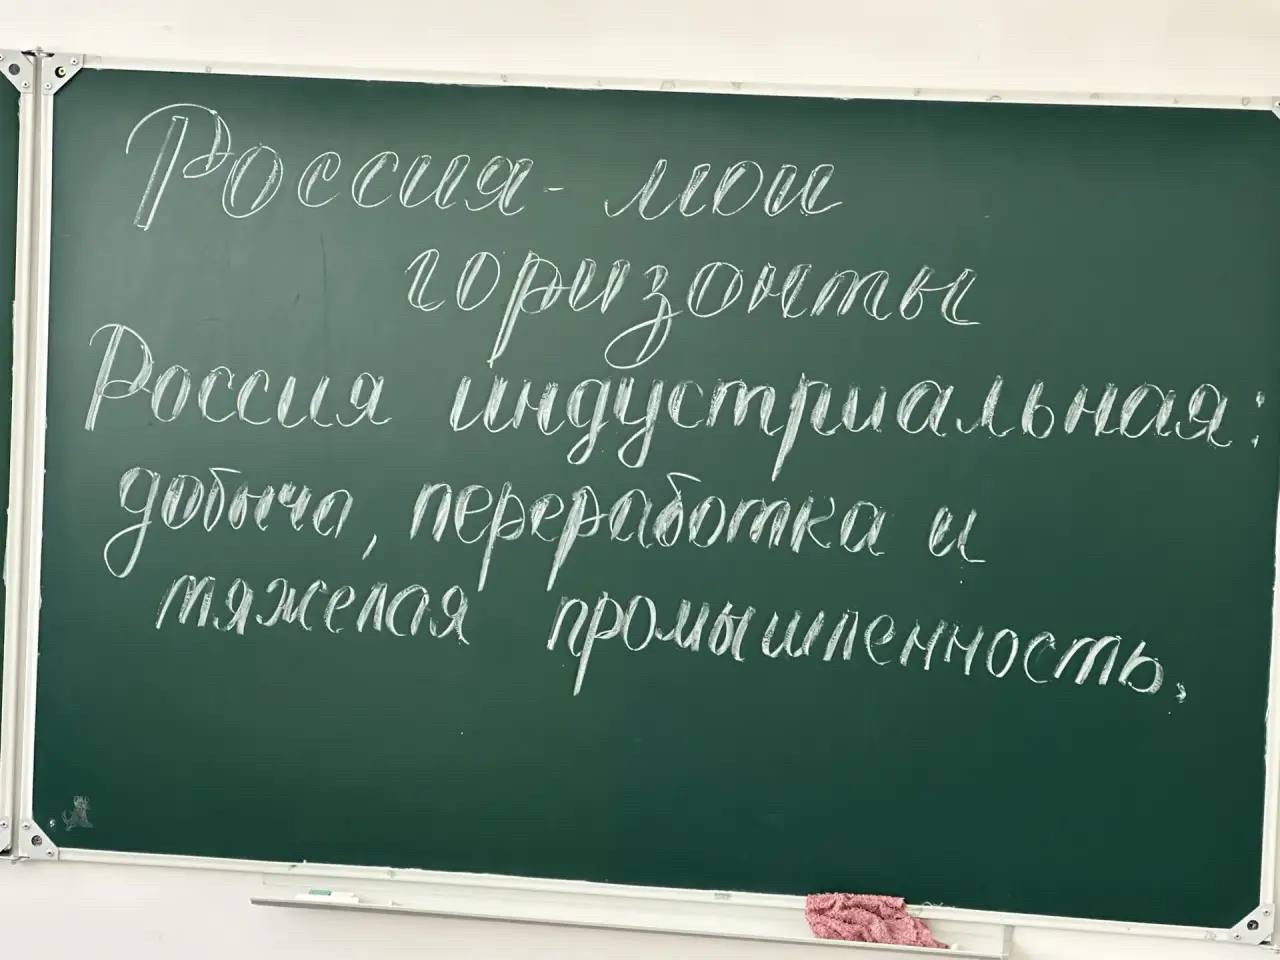 Россия - мои
горизонты
Россия индустриальная:
добыча, переработка и
тяжелая промышленность.